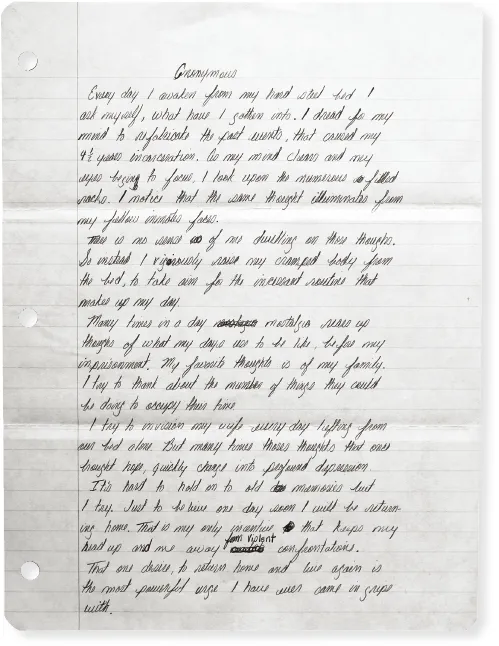 Anonymous
Every day I awaken from my hard steel bed I
ask myself, what have I gotten into. I dread for my
mind to refabricate the past events, that caused my
9½ years incarceration. As my mind clears and my
eyes begin to focus, I look upon the numerous filled
racks. I notice that the same thought illuminates from
my fellow inmates faces.
There is no sense of me dwelling on those thoughts.
So instead I vigorously raise my cramped body from
the bed, to take aim for the incessant routine that
makes up my day.
Many times in a day nostalgia rears up
thoughts of what my days use to be like, before my
imprisonment. My favorite thoughts is of my family.
I try to thank about the number of things they could
be doing to occupy their time.
I try to invision my wife every day lifting from
our bed alone. But many times those thoughts that once
brought hope, quickly change into profound depression.
It's hard to hold on to old memories but
I try. Just to believe one day soon I will be return-
ing home. That is my only incentive that keeps my
head up and me away from violent confrontations.
That one desire, to return home and live again is
the most powerful urge I have ever came in grips
with.